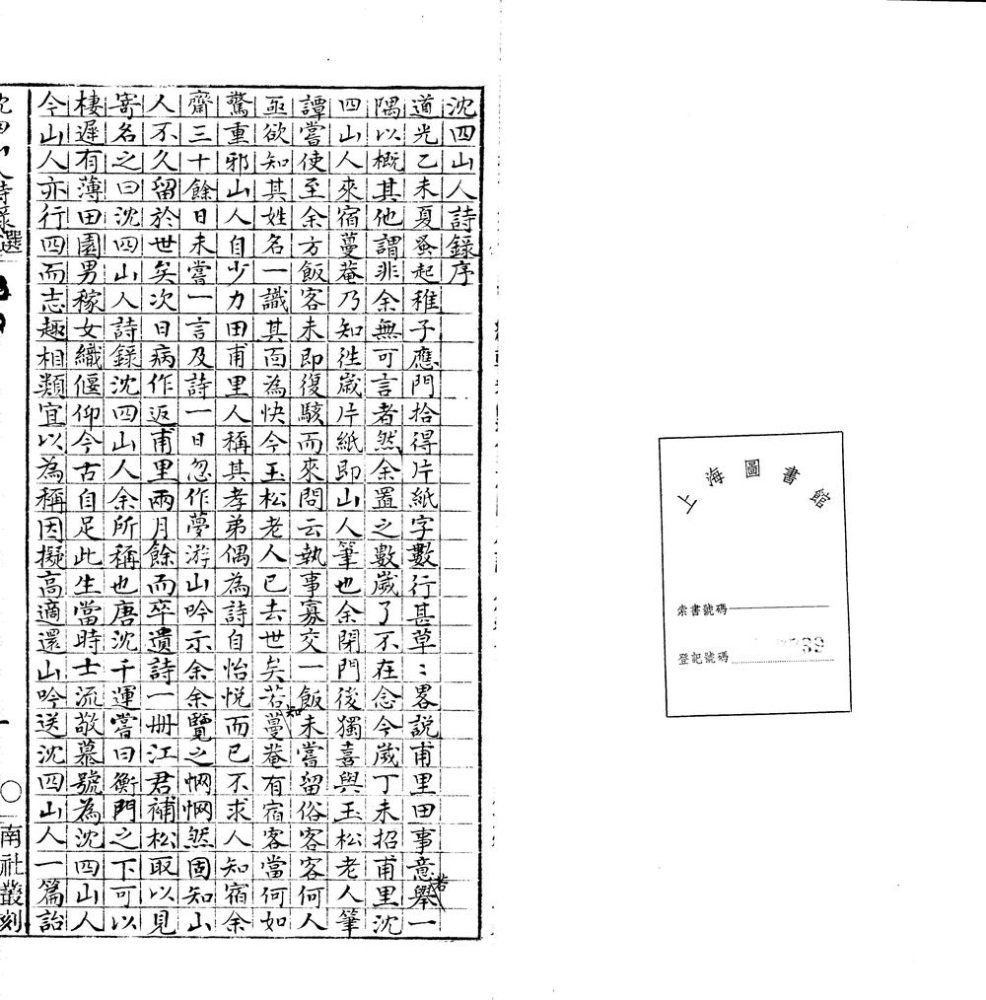 上海圖書館
索書號碼
登記號碼
沈四山人詩錄序
道光乙未夏蚤起稚子應門拾得片紙字數行甚草〻畧說甫里田事意若舉一
隅以概其他謂非余無可言者然余置之數歲了不在念今歲丁未招甫里沈
四山人來宿蔓菴乃知徃歲片紙即山人筆也余閉門後獨喜與玉松老人筆
譚嘗使至余方飯客未即復駭而來問云執事寡交一飯未嘗留俗客客何人
亟欲知其姓名一識其面為快今玉松老人已去世矣若知蔓菴有宿客當何如
驚重邪山人自少力田甫里人稱其孝弟偶為詩自怡悅而已不求人知宿余
齋三十餘日未嘗一言及詩一日忽作夢游山吟示余余覽之惘惘然固知山
人不久留於世矣次日病作返甫里兩月餘而卒遺詩一册江君補松取以見
寄名之曰沈四山人詩錄沈四山人余所稱也唐沈千運嘗曰衡門之下可以
棲遲有薄田園男稼女織偃仰今古自足此生當時士流敬慕號為沈四山人
今山人亦行四而志趣相類宜以為稱因擬高適還山吟送沈四山人一篇詒
沈四山人詩錄選 一 〇南社叢刻